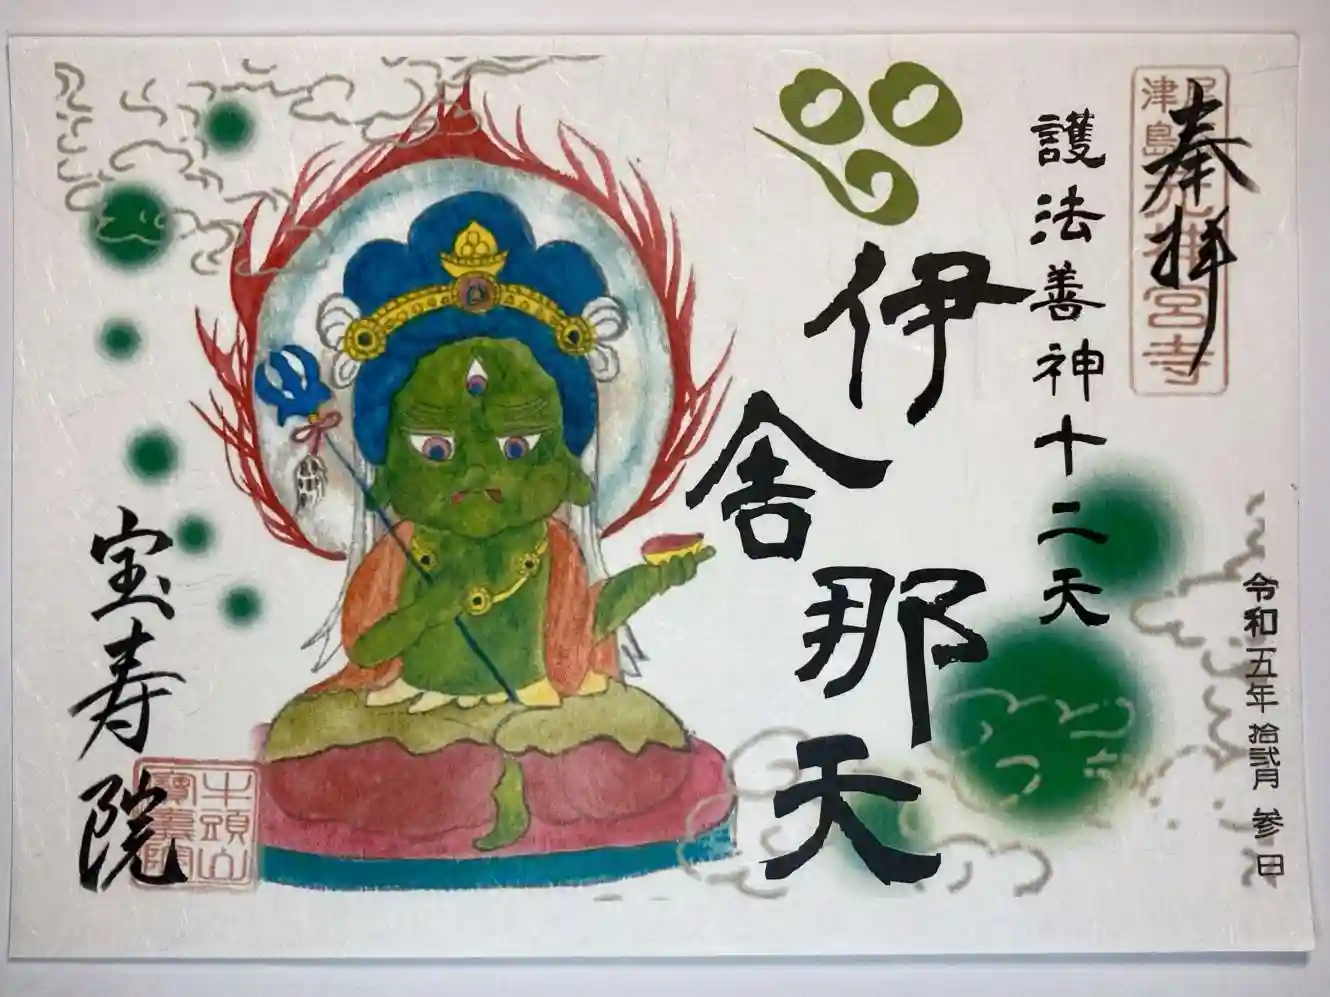 奉拝
護法善神十二天
伊舎那天
令和五年 拾弐月 参日
宝寿院
牛頭山